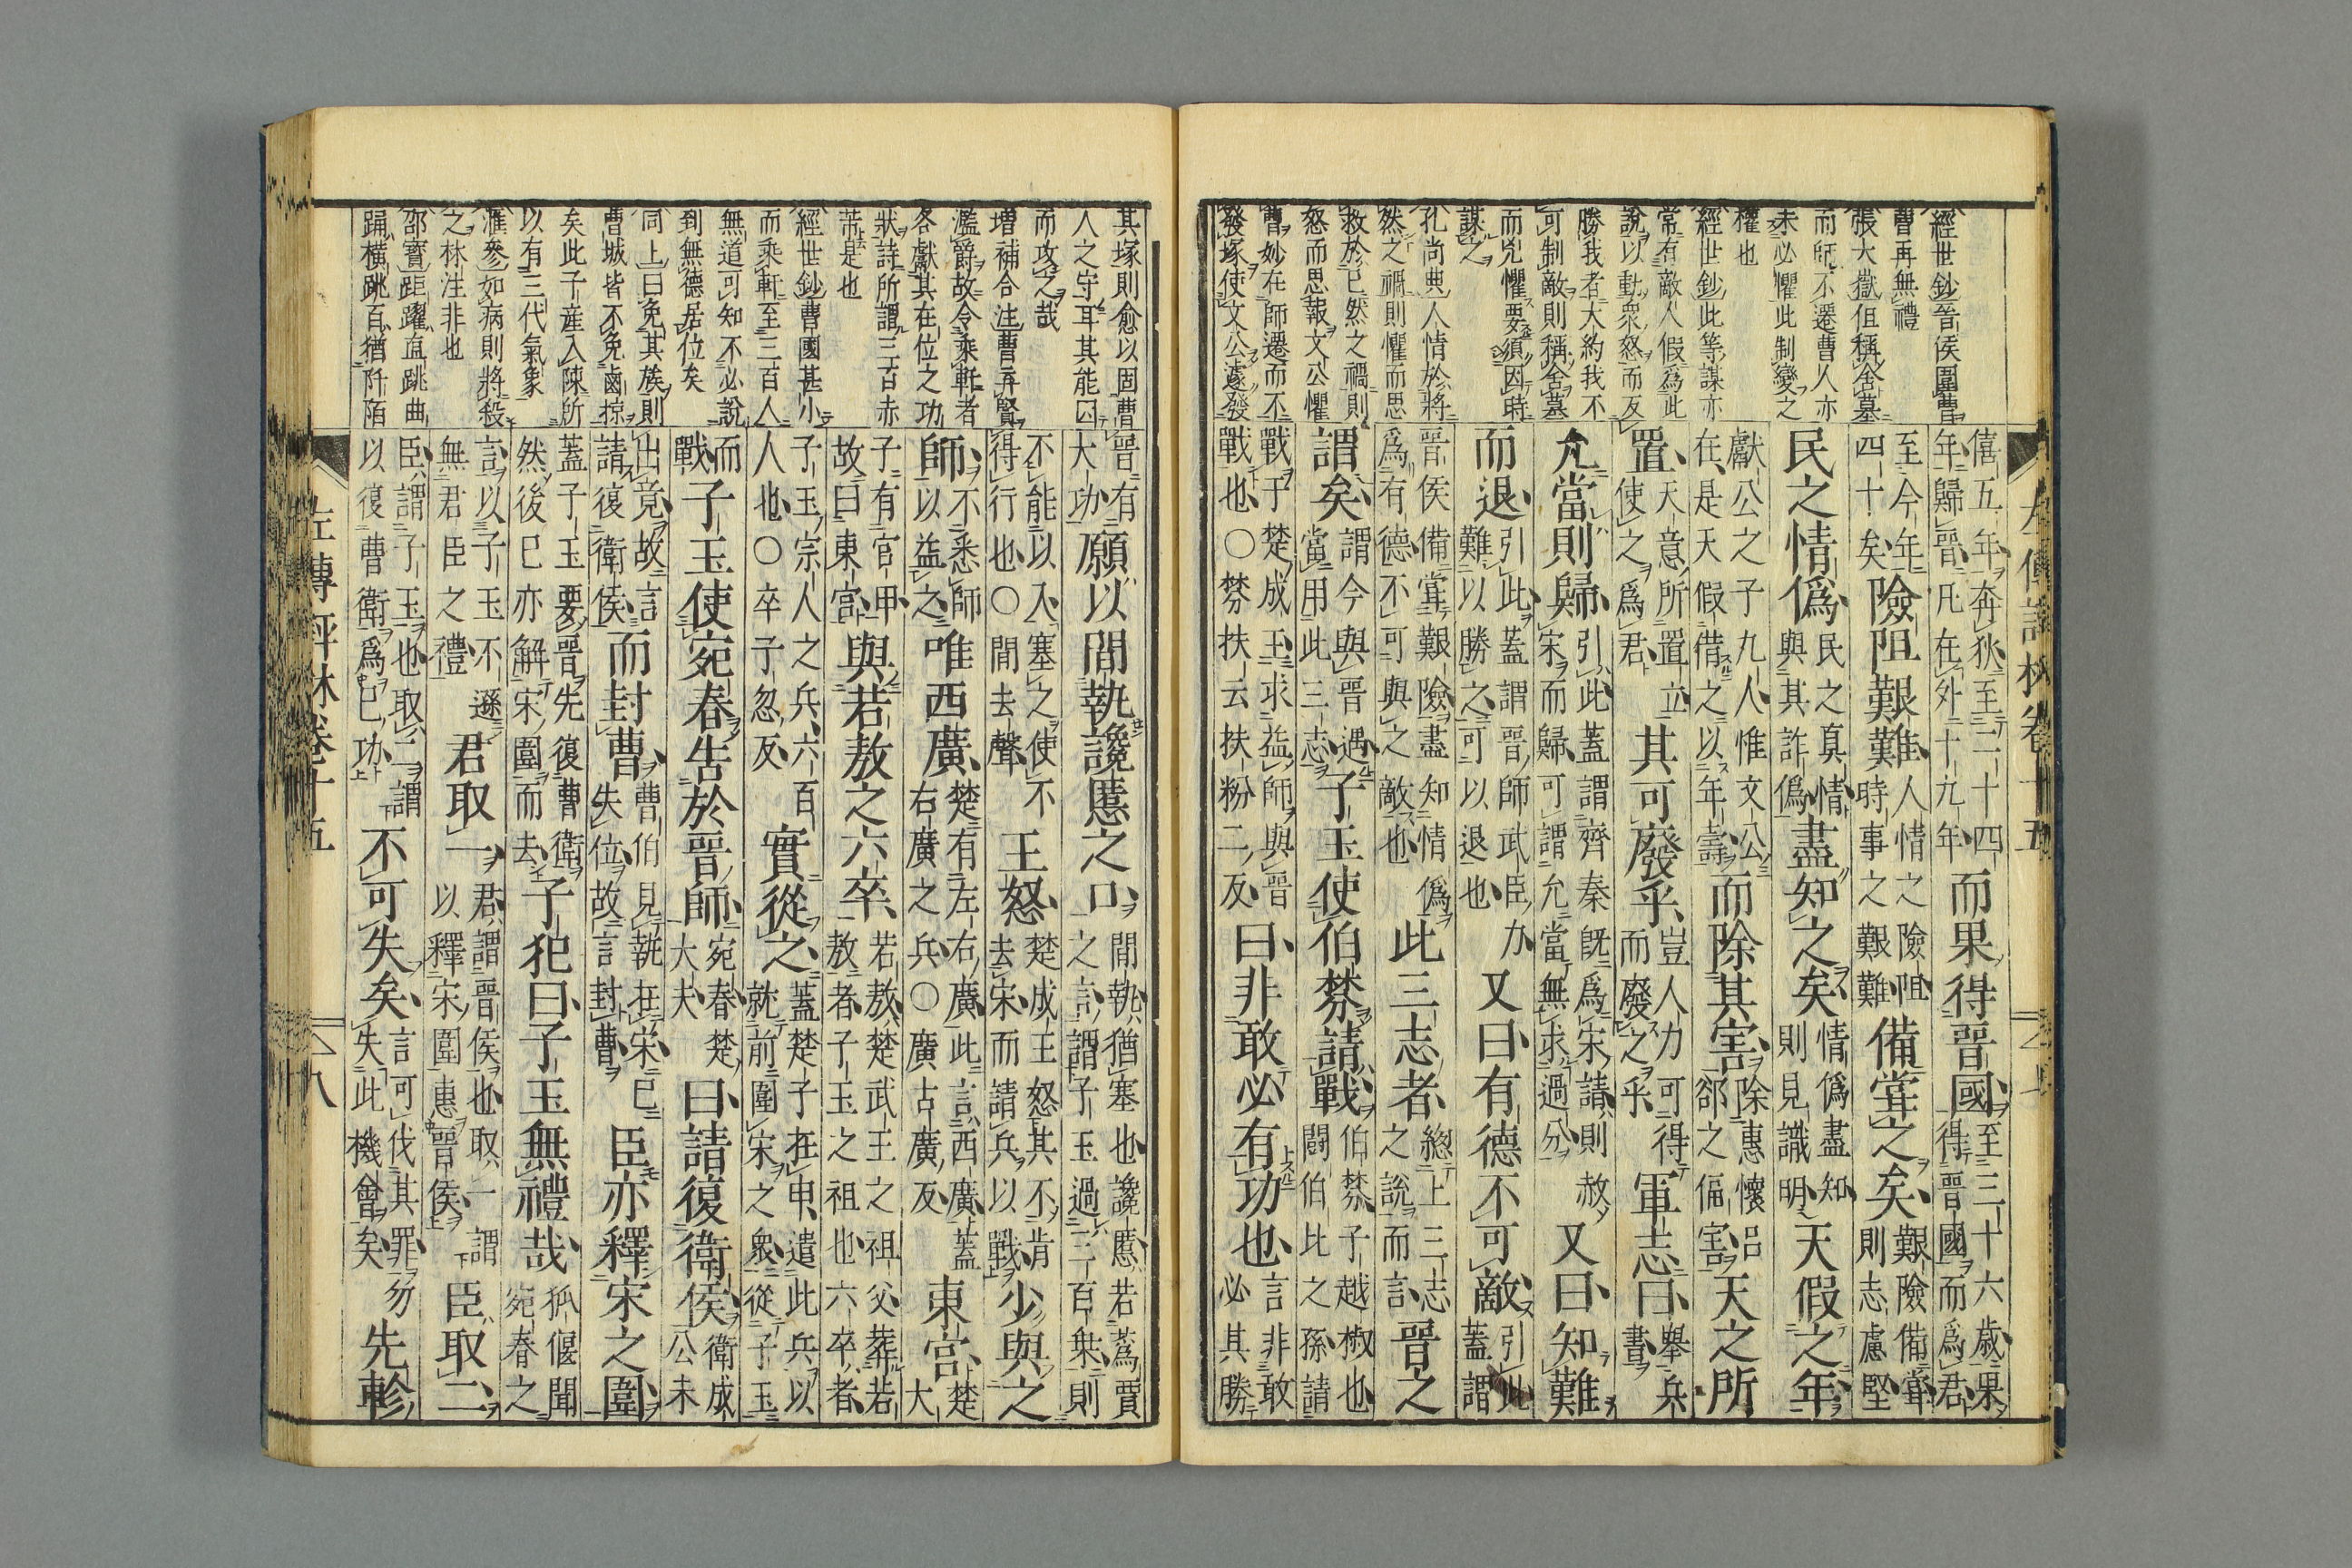 經世鈔晉侯圍曹
曹再無禮
張大獄佢稱舍墓
而師不遷曹人亦
未必懼此制變之
權也
經世鈔此等謀亦
常有敵人假爲此
說以動衆怒而反
勝我者大約我不
可制敵則稱舍墓
而兇懼要須因時
謀之
孔尚典人情於將
然之禍則懼而思
救於已然之禍則
怒而思報文公懼
曹妙在師遷而不
發塚使文公遂發
僖五年奔狄至二十四年歸晉凡在外十九年而果得晉國至三十六歲果得晉國而爲君
至今年四十矣險阻艱難人情之險阻時事之艱難備嘗之矣艱險備嘗則志慮堅
民之情僞民之真情與其詐僞盡知之矣情僞盡知則見識明天假之年
獻公之子九人惟文公在是天假借之以年壽而除其害除惠懷呂郤之偪害天之所
置天意所置立使之爲君其可廢乎豈人力可得而廢之乎軍志曰舉兵書
允當則歸引此蓋謂齊秦既爲宋請則赦宋而歸可謂允當無求過分又曰知難
而退引此蓋謂晉師武臣力難以勝之可以退也又曰有德不可敵引此蓋謂
晉侯備嘗艱險盡知情僞爲有德不可與之敵也此三志者總上三志之說而言晉之
謂矣謂今與晉遇當用此三志子玉使伯棼請戰伯棼子越椒也鬪伯比之孫請
戰于楚成王求益師與晉戰也○棼扶云扶粉二反曰非敢必有功也言非敢必其勝
左傳評林卷十五
其塚則愈以固曹
人之守耳其能囚
而攻之哉
增補合注曹再賢
濫爵故令乘軒者
各獻其在位之功
狀詩所謂三百赤
芾是也
經世鈔曹國甚小
而乘軒至三百人
無道可知不必說
到無德居位矣
同上曰免其族則
曹城皆不免鹵掠
矣此子産入陳所
以有三代氣象
滙參如病則將殺
之林注非也
邵寶距躍直跳曲
踊橫跳百猶阡陌
晉有大功願以間執讒慝之口間執猶塞也讒慝若蔿賈之言謂子玉過三百乘則
不能以入塞之使不得行也○間去聲王怒楚成王怒其不肯去宋而請兵以戰少與之
師不悉師以益之唯西廣楚有左右廣此言西廣蓋右廣之兵○廣古廣反東宮楚大
子有官甲故曰東宮與若敖之六卒若敖楚武王之祖父葬若敖者子玉之祖也六卒者
子玉宗人之兵六百人也○卒子忽反實從之蓋楚子在申遣此兵以就前圍宋之衆從子玉
而戰子玉使宛春告於晉師宛春楚大夫曰請復衛侯衛成公未
出竟故言請復衛侯而封曹曹伯見執在宋已失位故言封曹臣亦釋宋之圍
蓋子玉要晉先復曹衛然後已亦解宋圍而去子犯曰子玉無禮哉狐偃聞宛春之
言以子玉不遜無君臣之禮君取一君謂晉侯也取一謂以釋宋圍惠晉侯臣取二
臣謂子玉也取二謂以復曹衛爲已功不可失矣言可伐其罪勿失此機會矣先軫
左傳評林卷十五
八